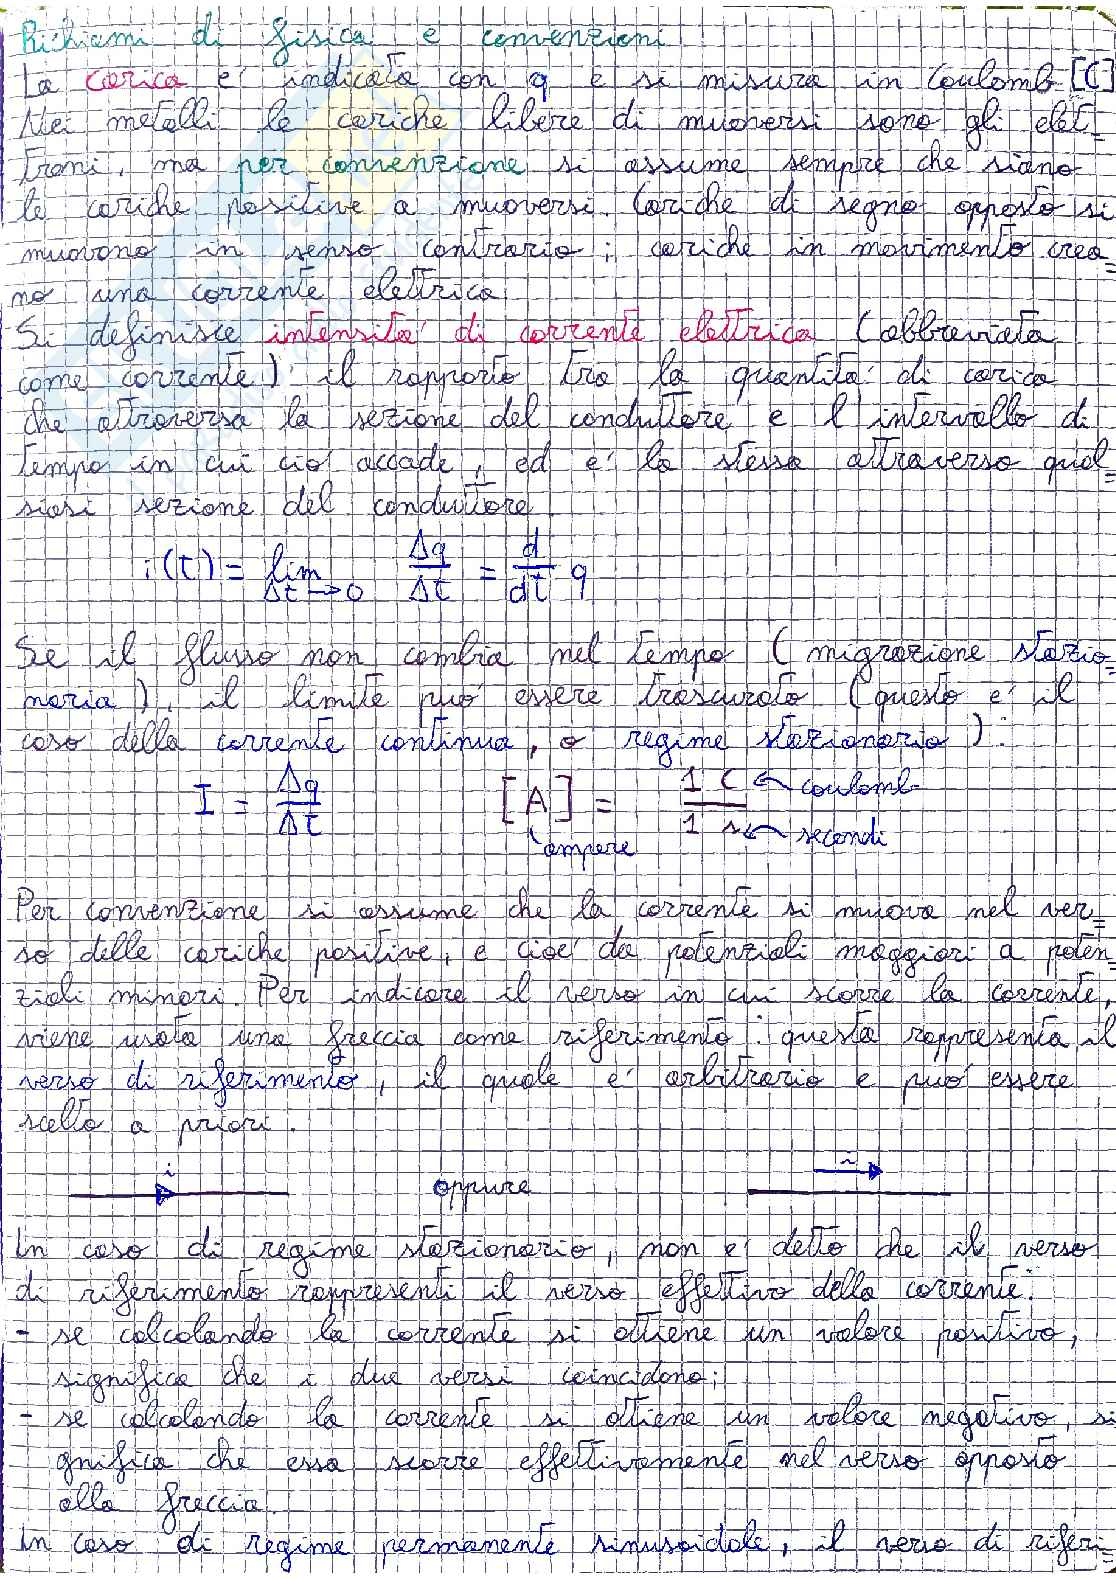 Richiami di fisica e convenzioni
La carica e' indicata con q e si misura in Coulomb [C]
Nei metalli le cariche libere di muoversi sono gli elet-
troni, ma per convenzione si assume sempre che siano
le cariche positive a muoversi. Cariche di segno opposto si
muovono in senso contrario; cariche in movimento crea=
no una corrente elettrica.
Si definisce intensita' di corrente elettrica (abbreviata
come corrente) il rapporto tra la quantita' di carica
che attraversa la sezione del conduttore e l'intervallo di
tempo in cui cio' accade, ed e' la stessa attraverso qual=
siasi sezione del conduttore.
i(t) = lim Δt→0 Δq/Δt = d/dt q
Se il flusso non cambia nel tempo (migrazione stazio
naria), il limite puo' essere trascurato (questo e' il
caso della corrente continua, o regime stazionario):
I = Δq/Δt [A] = 1 C/1 s coulomb
ampere secondi
Per convenzione si assume che la corrente si muova nel ver=
so delle cariche positive, e cioe' da potenziali maggiori a poten=
ziali minori. Per indicare il verso in cui scorre la corrente,
viene usata una freccia come riferimento: questa rappresenta il
verso di riferimento, il quale e' arbitrario e puo' essere
scelto a priori.
i oppure i
In caso di regime stazionario, non e' detto che il verso
di riferimento rappresenti il verso effettivo della corrente:
- se calcolando la corrente si ottiene un valore positivo,
significa che i due versi coincidono;
- se calcolando la corrente si ottiene un valore negativo, si
gnifica che essa scorre effettivamente nel verso opposto
alla freccia.
In caso di regime permanente sinusoidale, il verso di riferi=